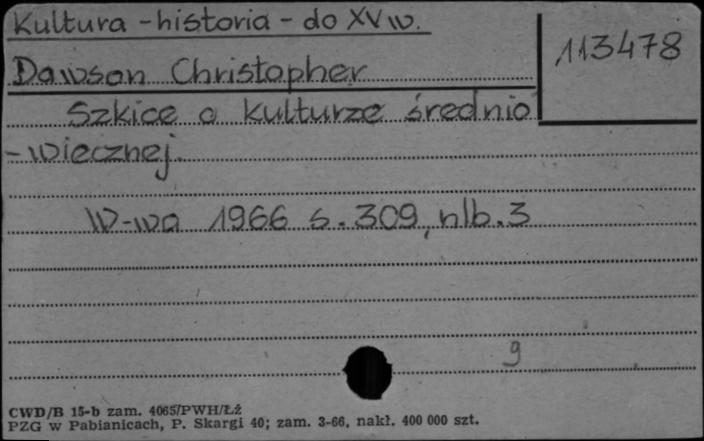 Kultura - historia - do XV w.
113478
Dawson Christopher
Szkice o kulturze średnio
- wiecznej.
W-wa 1966 s. 309, nlb. 3
9
CWD/B 15-b zam. 4065/PWH/Łż
PZG w Pabianicach, P. Skargi 40; zam. 3-66, nakł. 400 000 szt.